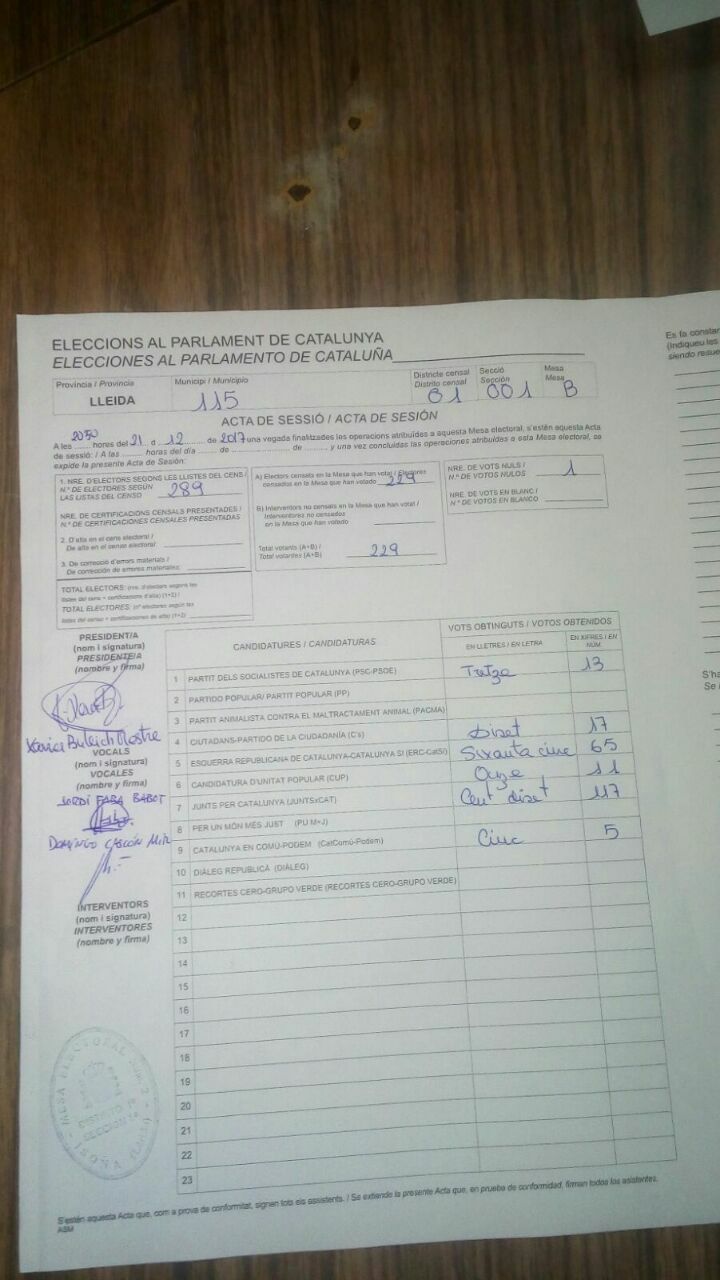 ELECCIONS AL PARLAMENT DE CATALUNYA
ELECCIONES AL PARLAMENTO DE CATALUÑA
Província / Provincia
Municipi / Municipio
Districte censal
Distrito censal
Secció
Sección
Mesa
Mesa
LLEIDA 115 01 001 B
ACTA DE SESSIÓ / ACTA DE SESIÓN
A les 2050 hores del 21 d 12 de 2017 una vegada finalitzades les operacions atribuïdes a aquesta Mesa electoral, s'estén aquesta Acta
de sessió: / A las hores del día de de y una vez concluidas las operaciones atribuidas a esta Mesa electoral, se
expide la presente Acta de Sesión:
1. NRE. D'ELECTORS SEGONS LES LLISTES DEL CENS /
N.º DE ELECTORES SEGÚN
LAS LISTAS DEL CENSO 289
NRE. DE CERTIFICACIONS CENSALS PRESENTADES /
N.º DE CERTIFICACIONES CENSALES PRESENTADAS
2. D'alta en el cens electoral /
De alta en el censo electoral
3. De correcció d'errors materials /
De corrección de errores materiales:
TOTAL ELECTORS: (nre. d'electors segons les
llistes del cens + certificacions d'alta) (1+2) /
TOTAL ELECTORES: (nº electores según las
listas del censo + certificaciones de alta) (1+2)
A) Electors censats en la Mesa que han votat / Electores
censados en la Mesa que han votado 229
B) Interventors no censats en la Mesa que han votat /
Interventores no censados
en la Mesa que han votado
Total votants (A+B) /
Total votantes (A+B) 229
NRE. DE VOTS NULS /
N.º DE VOTOS NULOS 1
NRE. DE VOTS EN BLANC /
N.º DE VOTOS EN BLANCO
PRESIDENT/A
(nom i signatura)
PRESIDENTE/A
(nombre y firma)
VOCALS
(nom i signatura)
VOCALES
(nombre y firma)
JORDI FABA BABOT
DOMINGO
INTERVENTORS
(nom i signatura)
INTERVENTORES
(nombre y firma)
CANDIDATURES / CANDIDATURAS
VOTS OBTINGUTS / VOTOS OBTENIDOS
EN LLETRES / EN LETRA
EN XIFRES / EN
NÚM
1 PARTIT DELS SOCIALISTES DE CATALUNYA (PSC-PSOE) Tretze 13
2 PARTIDO POPULAR/ PARTIT POPULAR (PP)
3 PARTIT ANIMALISTA CONTRA EL MALTRACTAMENT ANIMAL (PACMA)
4 CIUTADANS-PARTIDO DE LA CIUDADANÍA (C's) Disset 17
5 ESQUERRA REPUBLICANA DE CATALUNYA-CATALUNYA SÍ (ERC-CatSí) Sixanta cinc 65
6 CANDIDATURA D'UNITAT POPULAR (CUP) Onze 11
7 JUNTS PER CATALUNYA (JUNTSxCAT) Cent disset 117
8 PER UN MÓN MÉS JUST (PU M+J)
9 CATALUNYA EN COMÚ-PODEM (CatComú-Podem) Cinc 5
10 DIÀLEG REPUBLICÀ (DIÀLEG)
11 RECORTES CERO-GRUPO VERDE (RECORTES CERO-GRUPO VERDE)
12
13
14
15
16
17
18
19
20
21
22
23
MESA ELECTORAL
ISONA
S'estén aquesta Acta que, com a prova de conformitat, signen tots els assistents. / Se extiende la presente Acta que, en prueba de conformidad, firman todos los asistentes.
Es fa constar
(Indiqueu les
siendo resue
S'ha
Se